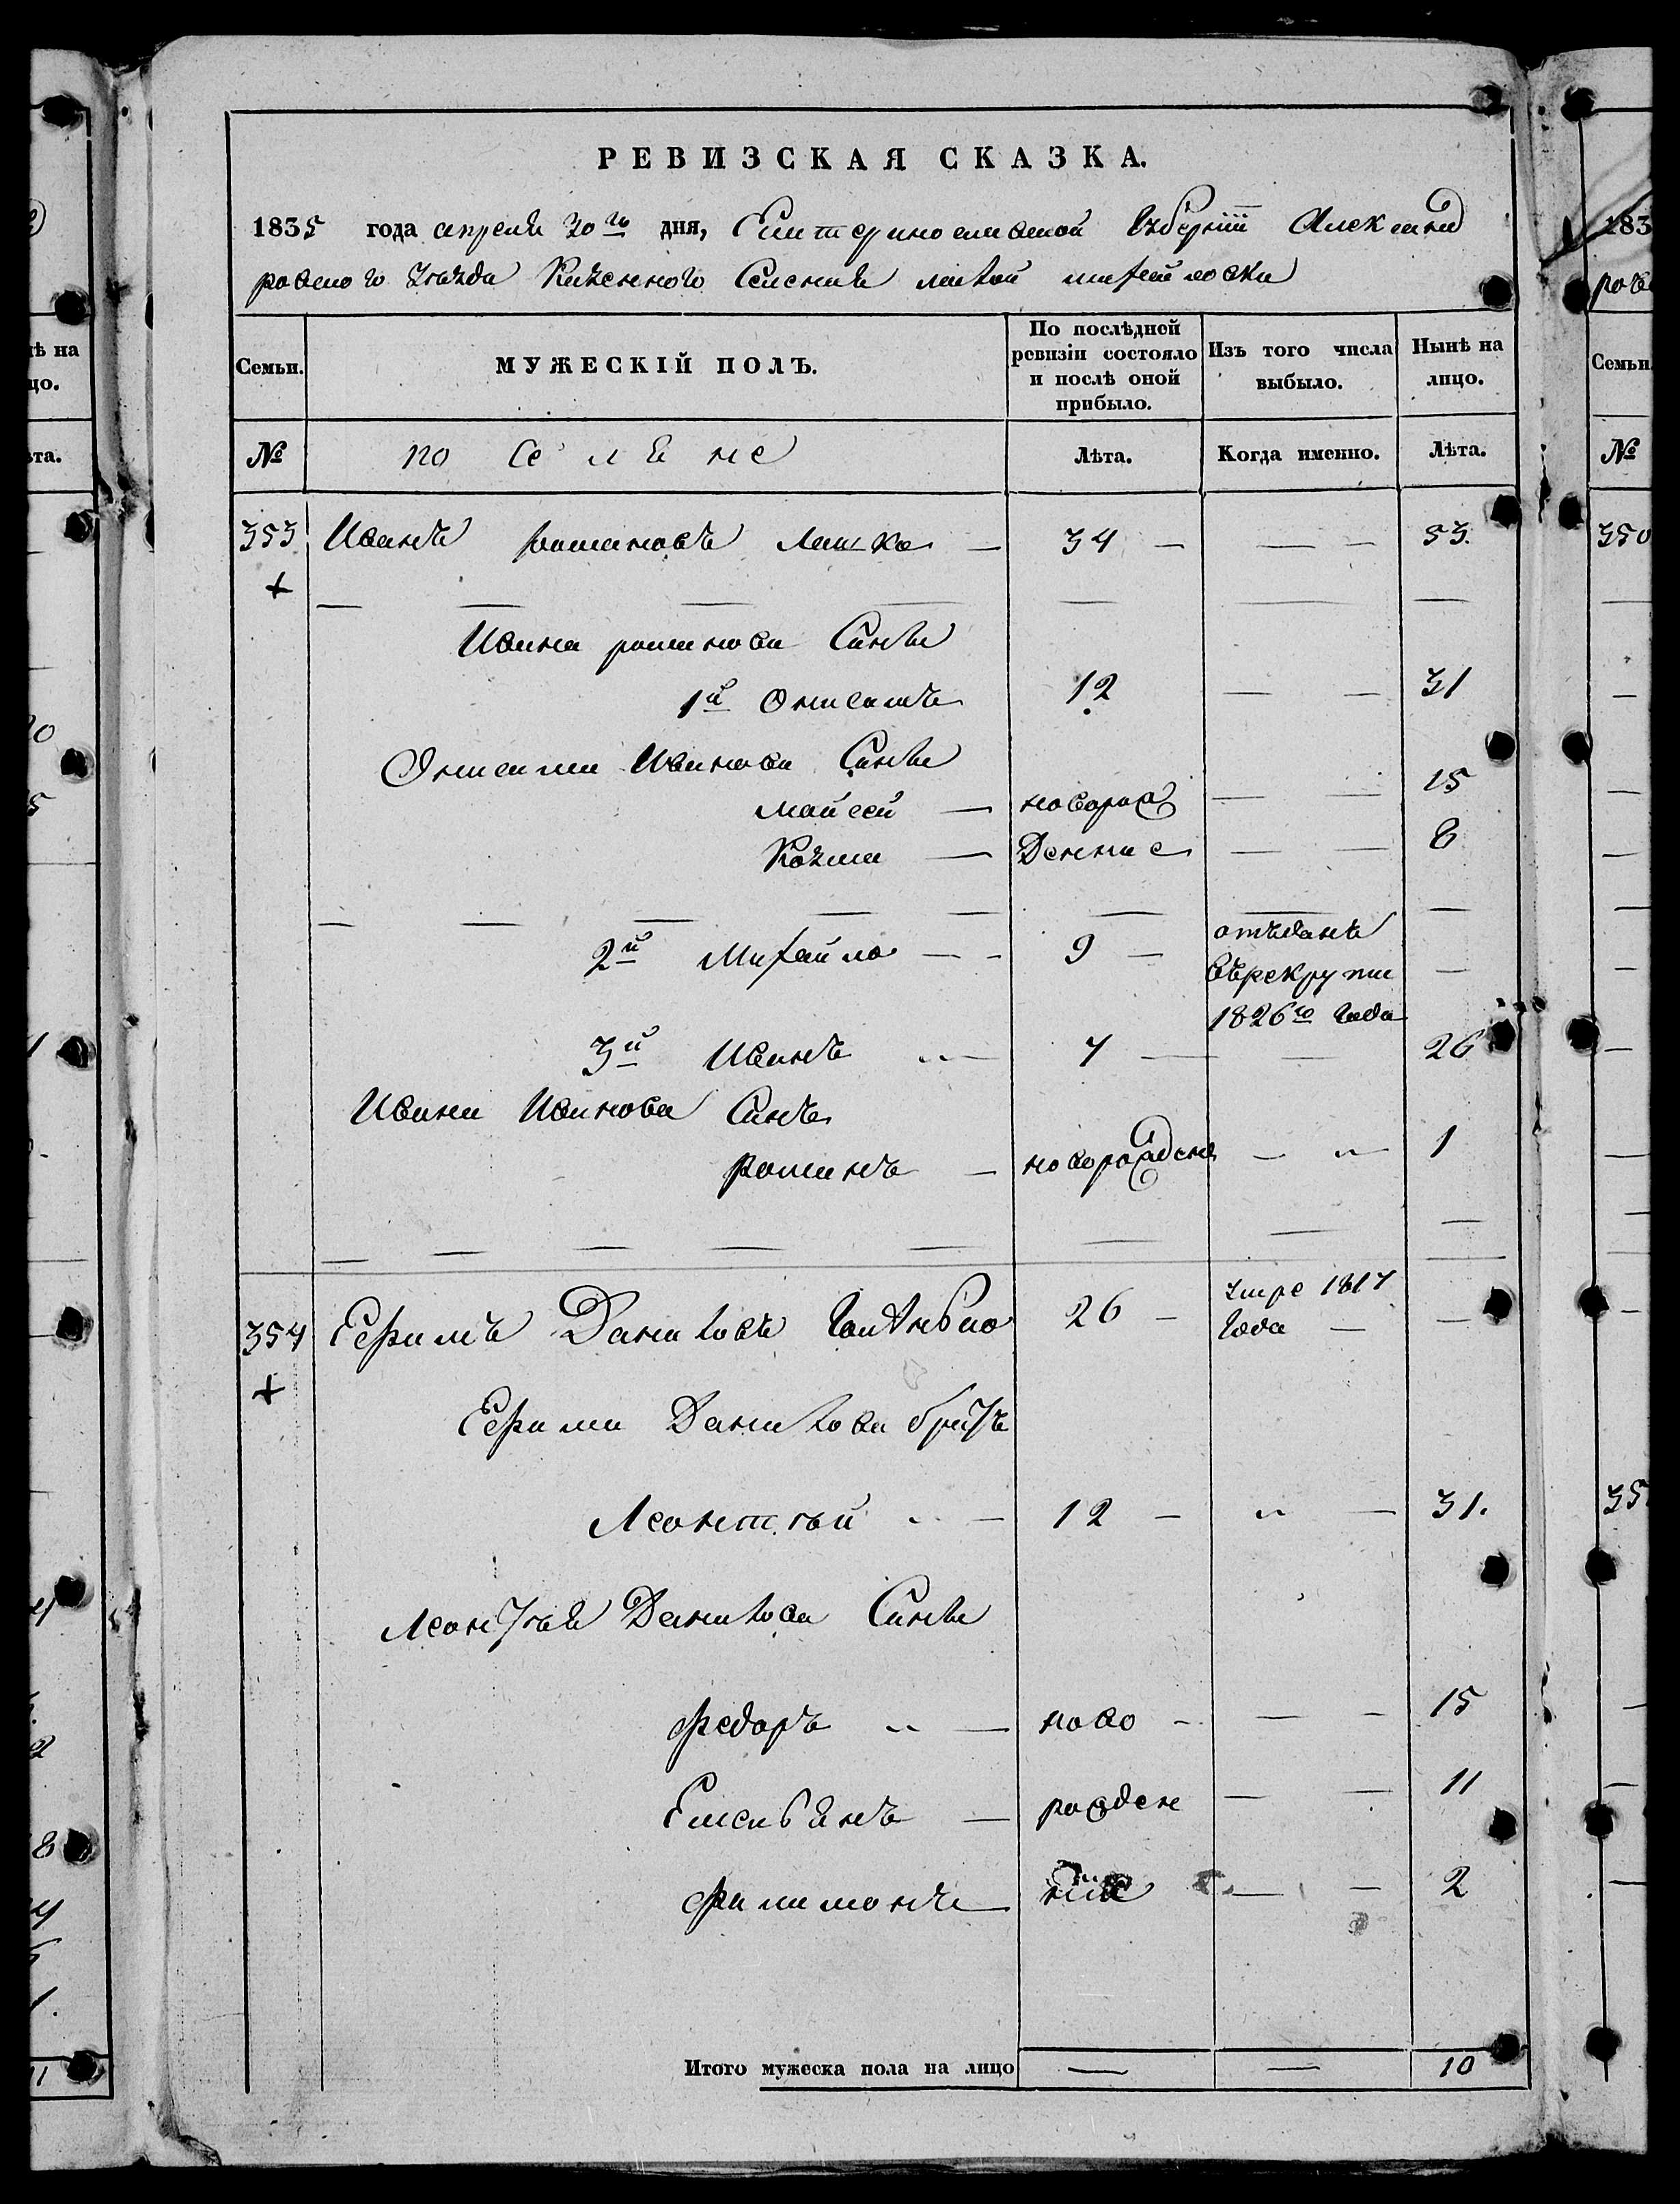 РЕВИЗСКАЯ СКАЗКА.
1835 года апреля 30го дня, Екатеринославской Губернiи Александ
ровского Уезда Казенного Селения малой михайловки
Семьи. МУЖЕСКІЙ ПОЛЪ. По послѣдней ревизіи состояло и послѣ оной прибыло. Изъ того числа выбыло. Нынѣ на лицо.
№ по Селяне Лѣта. Когда именно. Лѣта.
353 Иванъ романовъ 34 — — — 53.
+
Ивана романова Сины
1й Онисимъ 12 — — 31
Онисима Иванова Сины
мойсей — новорож — — 15
Козма — Денние — — 8
2й Михайло — — 9 — отъданъ
въ рекруты —
1826го Года
3й Иванъ — 7 — — 26
Ивана Иванова Синъ
романъ — новорожден — — 1
354 Ефимъ Даниловъ 26 — умре 1817
Года — —
+
Ефима Данилова братъ
Леонтъй — 12 — — 31.
Леонтъя Данилова Сины
Федоръ — ново — — — 15
Емельянъ — рожден — — 11
Филимонъ нiе — — 2
Итого мужеска пола на лицо — — 10
ѣ на
цо.
ѣта.
183
Семьи.
№
350
35